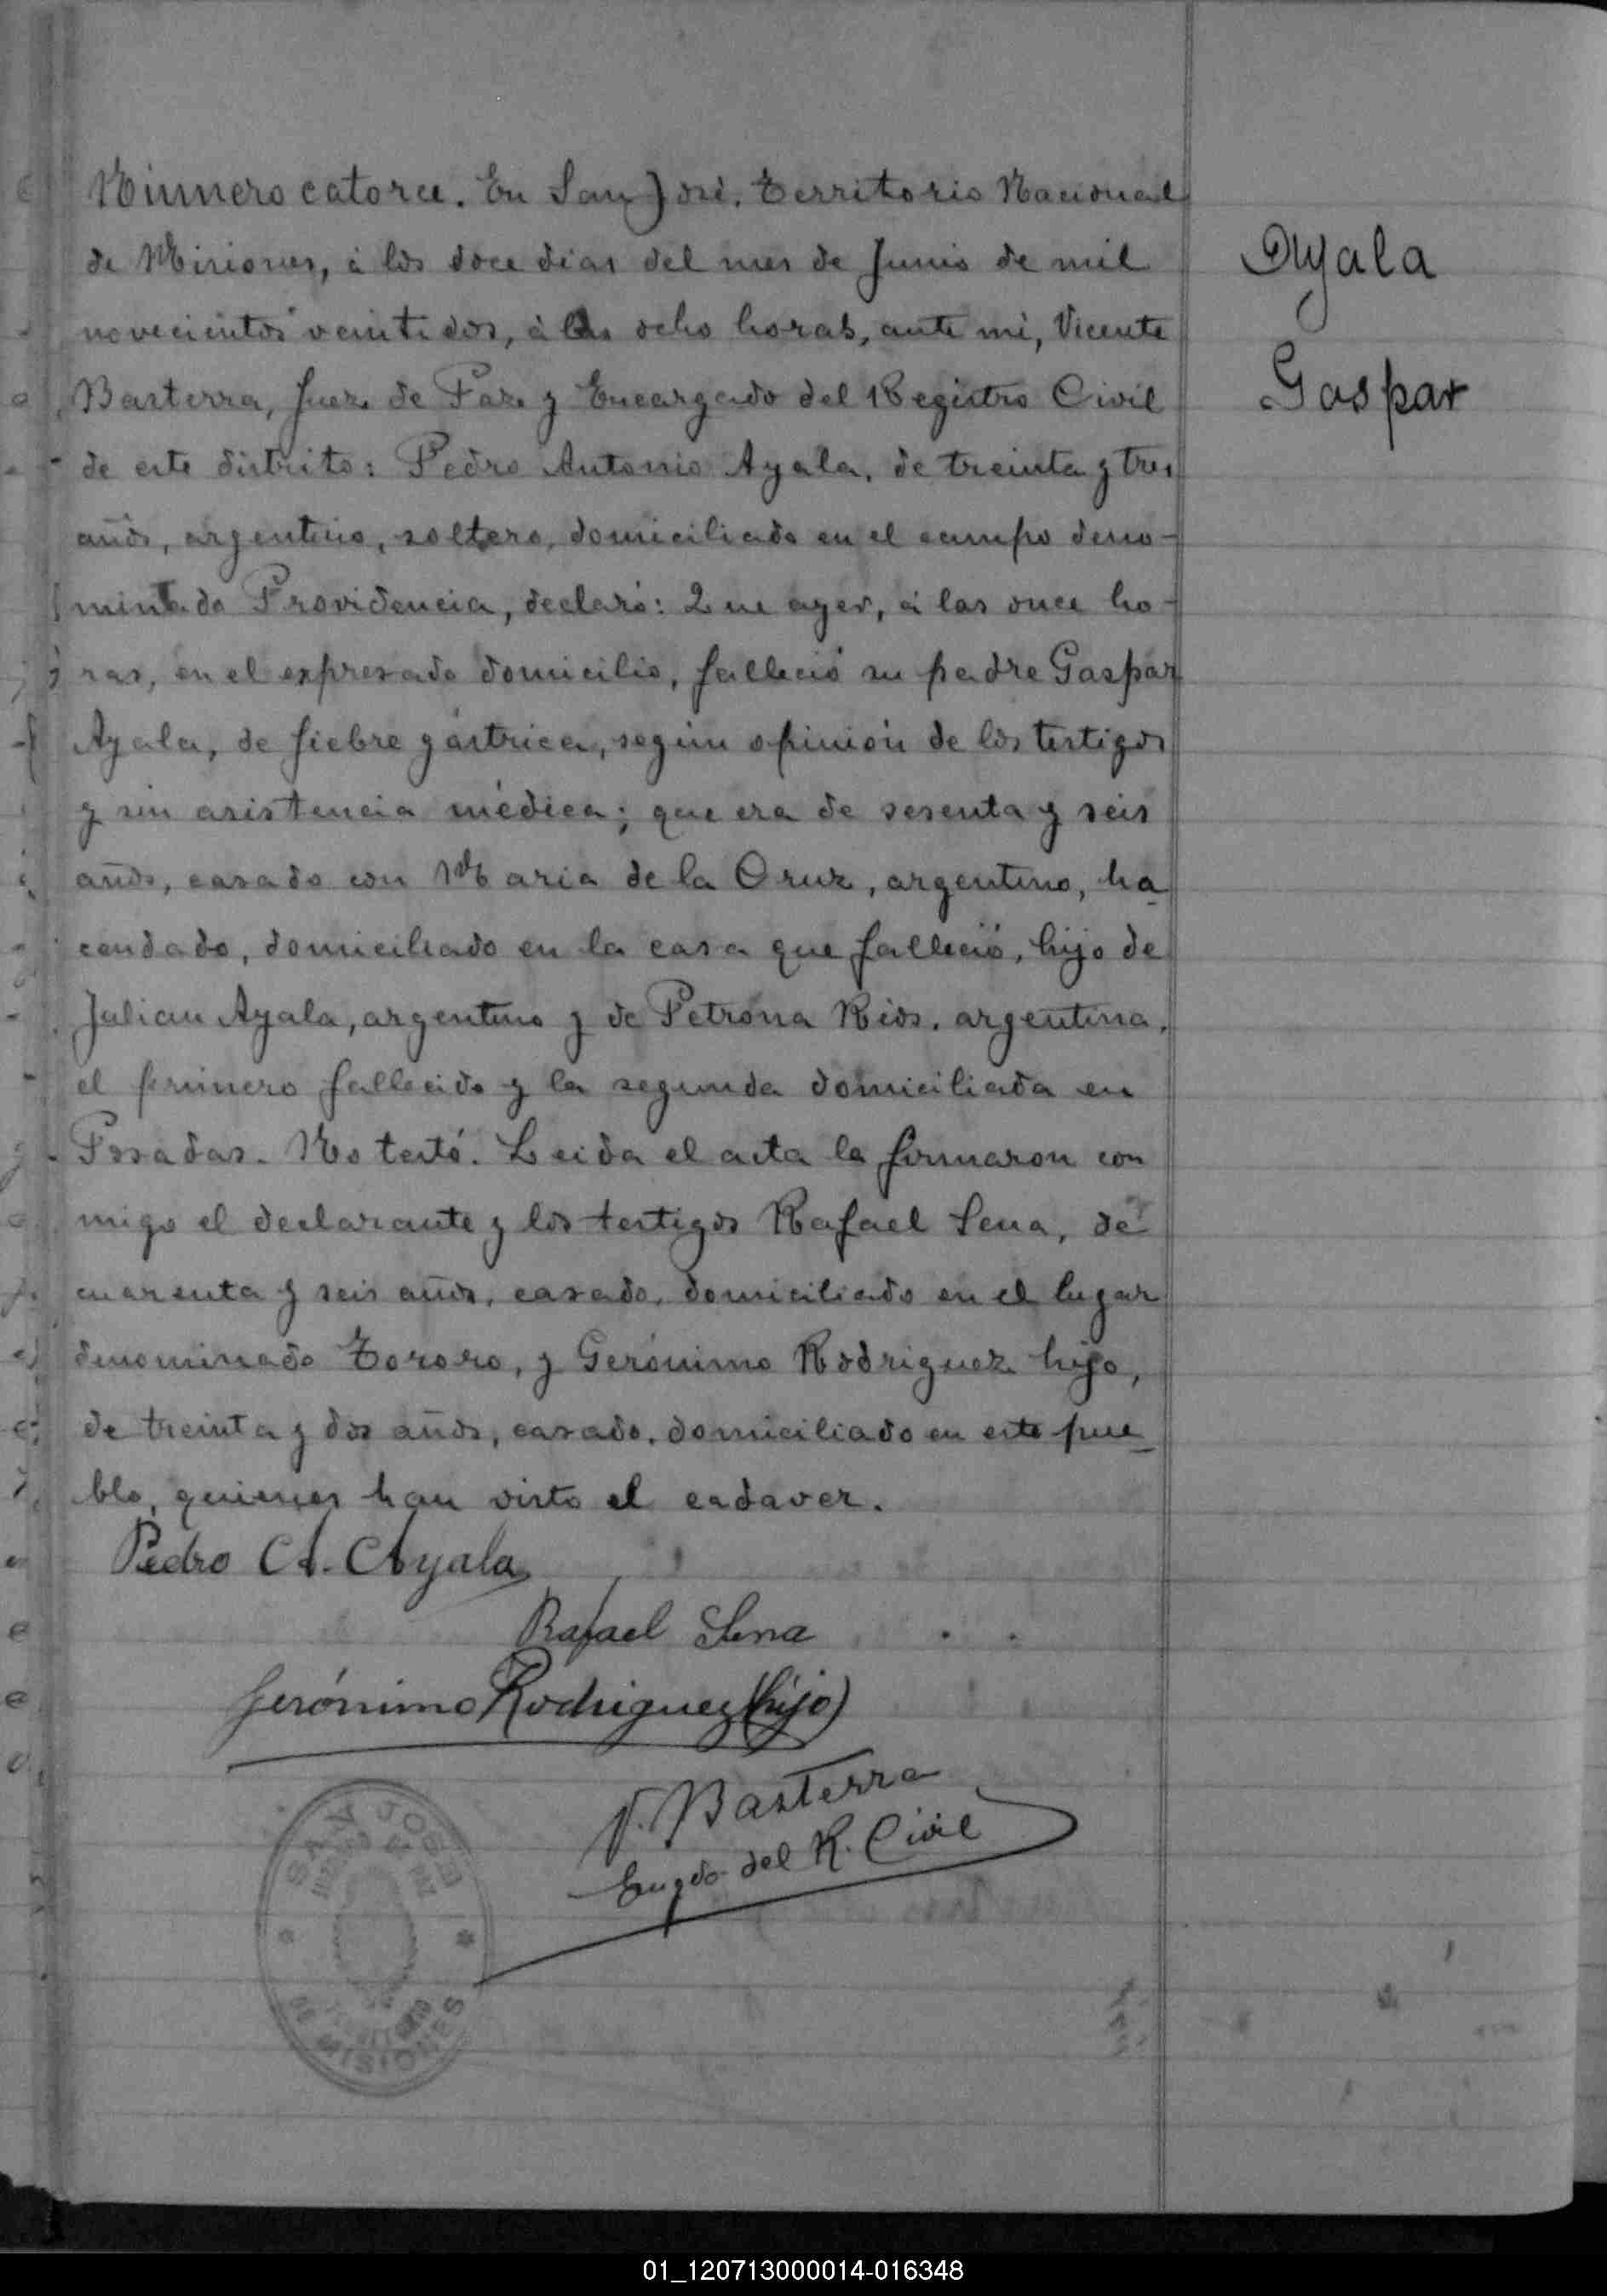 Número catorce. En San José, Territorio Nacional
de Misiones, á los doce dias del mes de Junio de mil
novecientos veintidos, á las ocho horas, ante mi, Vicente
Basterra, Juez de Paz y Encargado del Registro Civil
de este distrito: Pedro Antonio Ayala, de treinta y tres
años, argentino, soltero, domiciliado en el campo deno-
minado Providencia, declaró: Que ayer, á las once ho-
ras, en el expresado domicilio, falleció su padre Gaspar
Ayala, de fiebre gástrica, según opinión de los testigos
y sin asistencia médica; que era de sesenta y seis
años, casado con Maria de la Cruz, argentino, ha
cendado, domiciliado en la casa que falleció, hijo de
Julian Ayala, argentino y de Petrona Rios, argentina,
el primero fallecido y la segunda domiciliada en
Posadas. No testó. Leida el acta la firmaron con
migo el declarante y los testigos Rafael Sena, de
cuarenta y seis años, casado, domiciliado en el lugar
denominado Tororo, y Gerónimo Rodriguez hijo,
de treinta y dos años, casado, domiciliado en este pue
blo, quienes han visto el cadaver.
Pedro A. Ayala
Rafael Sena
Jerónimo Rodriguez (hijo)
V. Basterra
Engdo del R. Civil
SAN JOSE
JUZGADO DE PAZ
TERRITORIO
DE MISIONES
Ayala
Gaspar
01_120713000014-016348